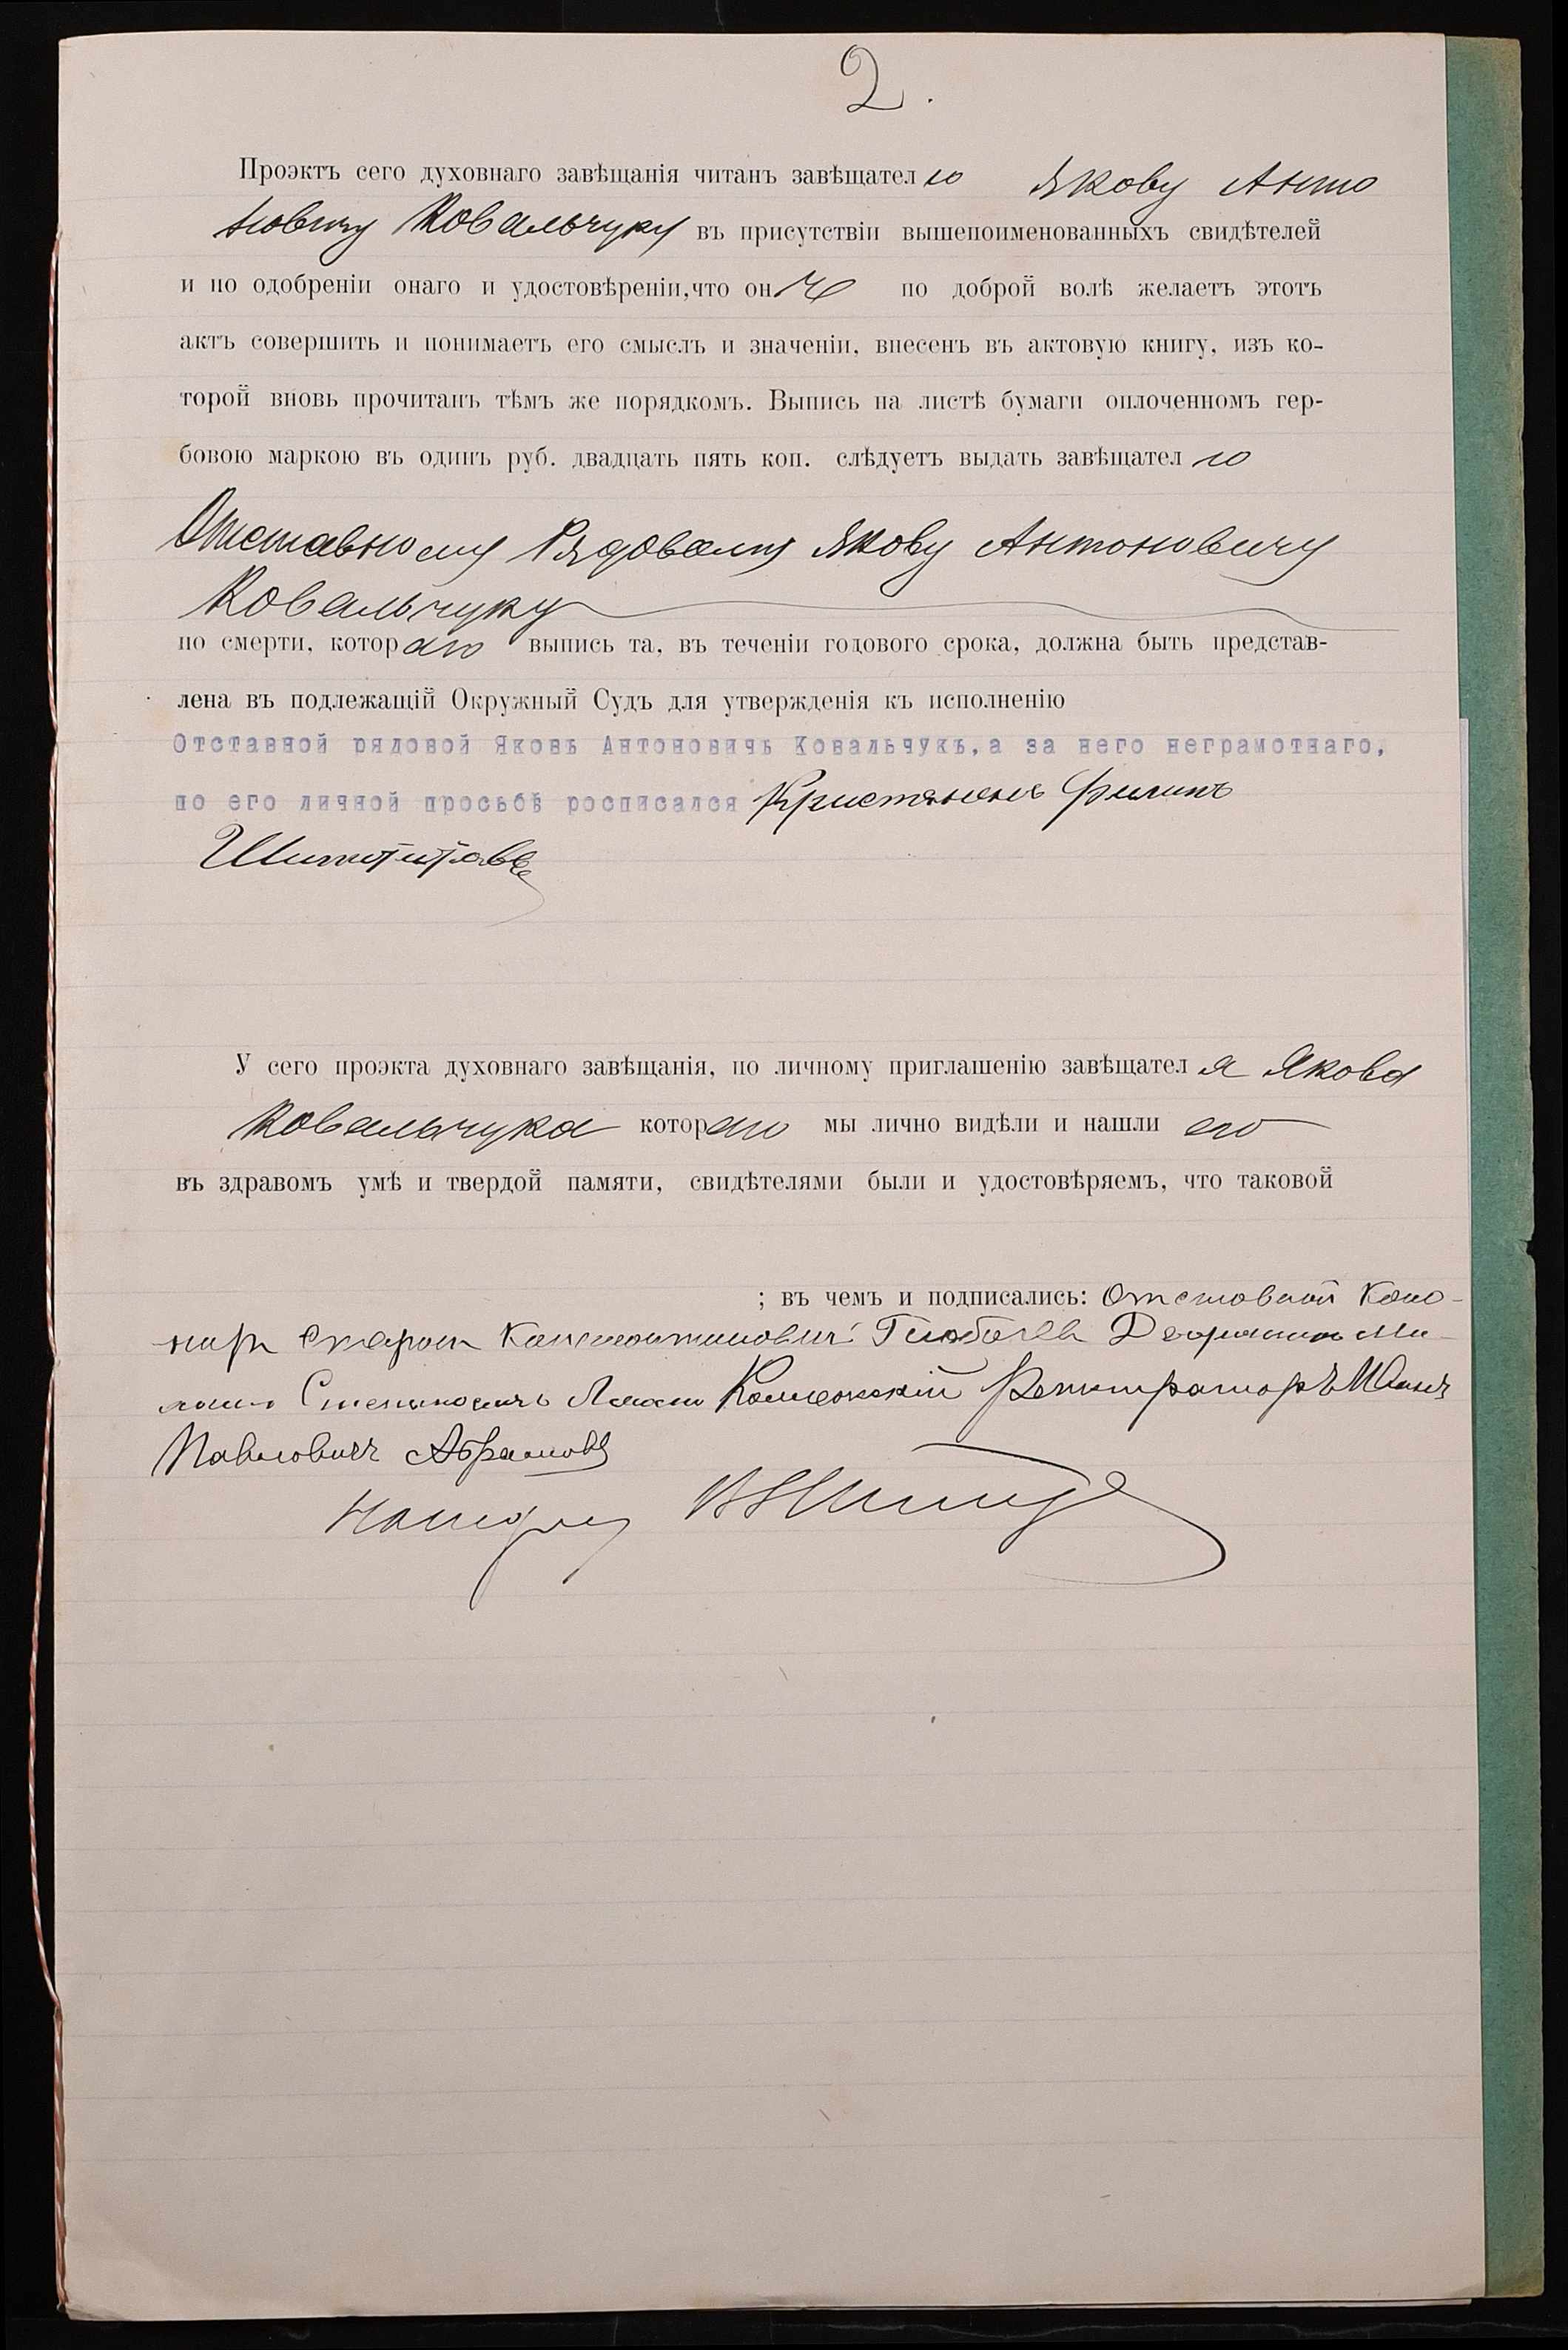 2.
Проэктъ сего духовнаго завѣщанія читанъ завѣщателю Якову Анто
новичу Ковальчуку въ присутствіи вышепоименованныхъ свидѣтелей
и по одобреніи онаго и удостовѣреніи, что онъ по доброй волѣ желаетъ этотъ
актъ совершить и понимаетъ его смыслъ и значеніи, внесенъ въ актовую книгу, изъ ко-
торой вновь прочитанъ тѣмъ же порядкомъ. Выпись на листѣ бумаги оплоченномъ гер-
бовою маркою въ одинъ руб. двадцать пять коп. слѣдуетъ выдать завѣщателю
Отставному Рядовому Якову Антоновичу
Ковальчуку
по смерти, котораго выпись та, въ теченіи годового срока, должна быть представ-
лена въ подлежащій Окружный Судъ для утвержденія къ исполненію
Отставной рядовой Яковъ Антоновичъ Ковальчукъ, а за него неграмотнаго,
по его личной просьбѣ росписался Кристянень Филипъ
У сего проэкта духовнаго завѣщанія, по личному приглашенію завѣщателя Якова
Ковальчука котораго мы лично видѣли и нашли его
въ здравомъ умѣ и твердой памяти, свидѣтелями были и удостовѣряемъ, что таковой
; въ чемъ и подписались: Отставной Кано-
ниръ Константиновичъ Дворянинъ Ми-
Степановичъ Коллежскій Регистраторъ Иванъ
Павловичъ Абрамовъ
Нотаріусъ